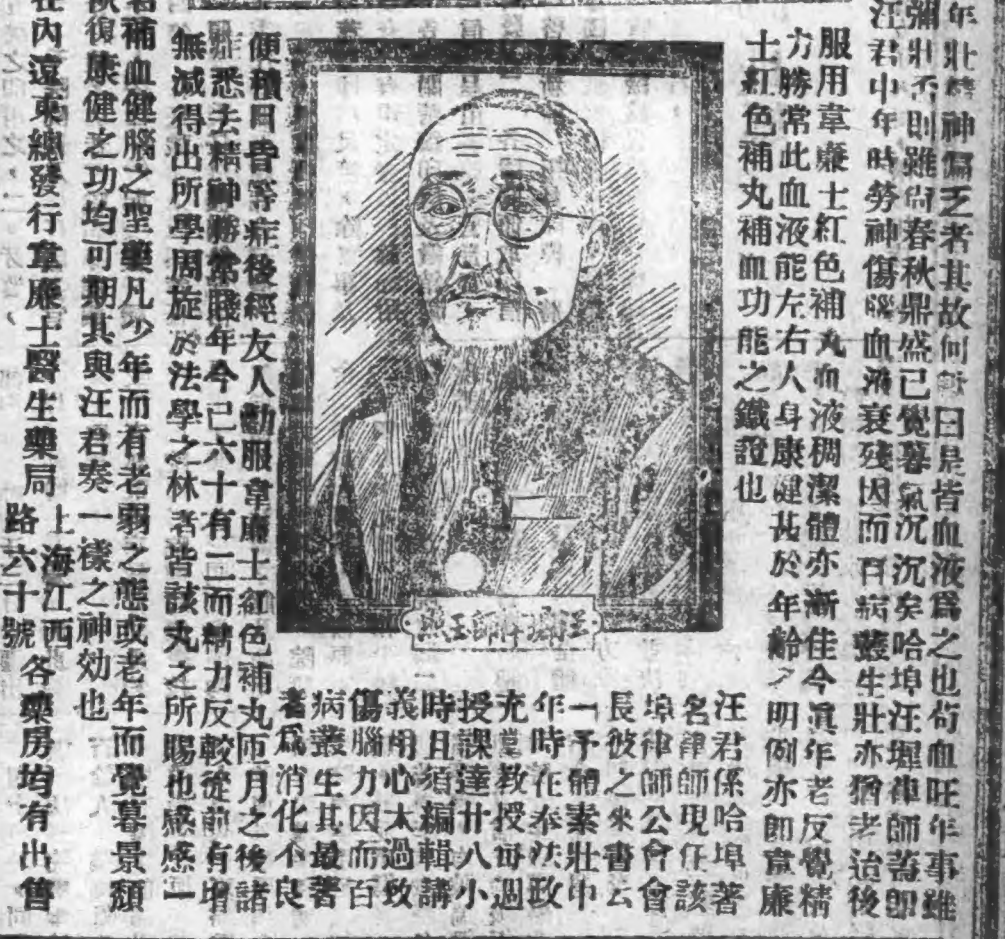 年壯
神偏乏者其故何
曰是皆血液為之也苟血旺年事雖
彌壯否則雖尚春秋鼎盛已覺暮氣沉沉矣哈埠汪
律師
汪君中年時勞神傷腦血液衰殘因而百病叢生壯亦猶老迨後
服用韋廉士紅色補丸血液稠潔體亦漸佳今
年老反覺精
力勝常此血液能左右人身康健甚於年齡之明例亦即韋廉
士紅色補丸補血功能之鐵證也
汪君係哈埠著
名律師現任該
埠律師公會會
長彼之來書云
一予體素壯中
年時在奉法政
充堂教授每週
授課達廿八小
時且須編輯講
義用心太過致
傷腦力因而百
病叢生其最著
者為消化不良
便積日昏等症後經友人勸服韋廉士紅色補丸匝月之後諸
悉去精神勝常賤年今已六十有二而精力反較從前有增
無減得出所學周旋於法學之林者皆該丸之所賜也感感一
補血健腦之聖藥凡少年而有老弱之態或老年而覺暮景頹
復康健之功均可期其與汪君奏一樣之神効也
在內遠東總發行韋廉士醫生藥局
上海江西
路六十號
各藥房均有出售